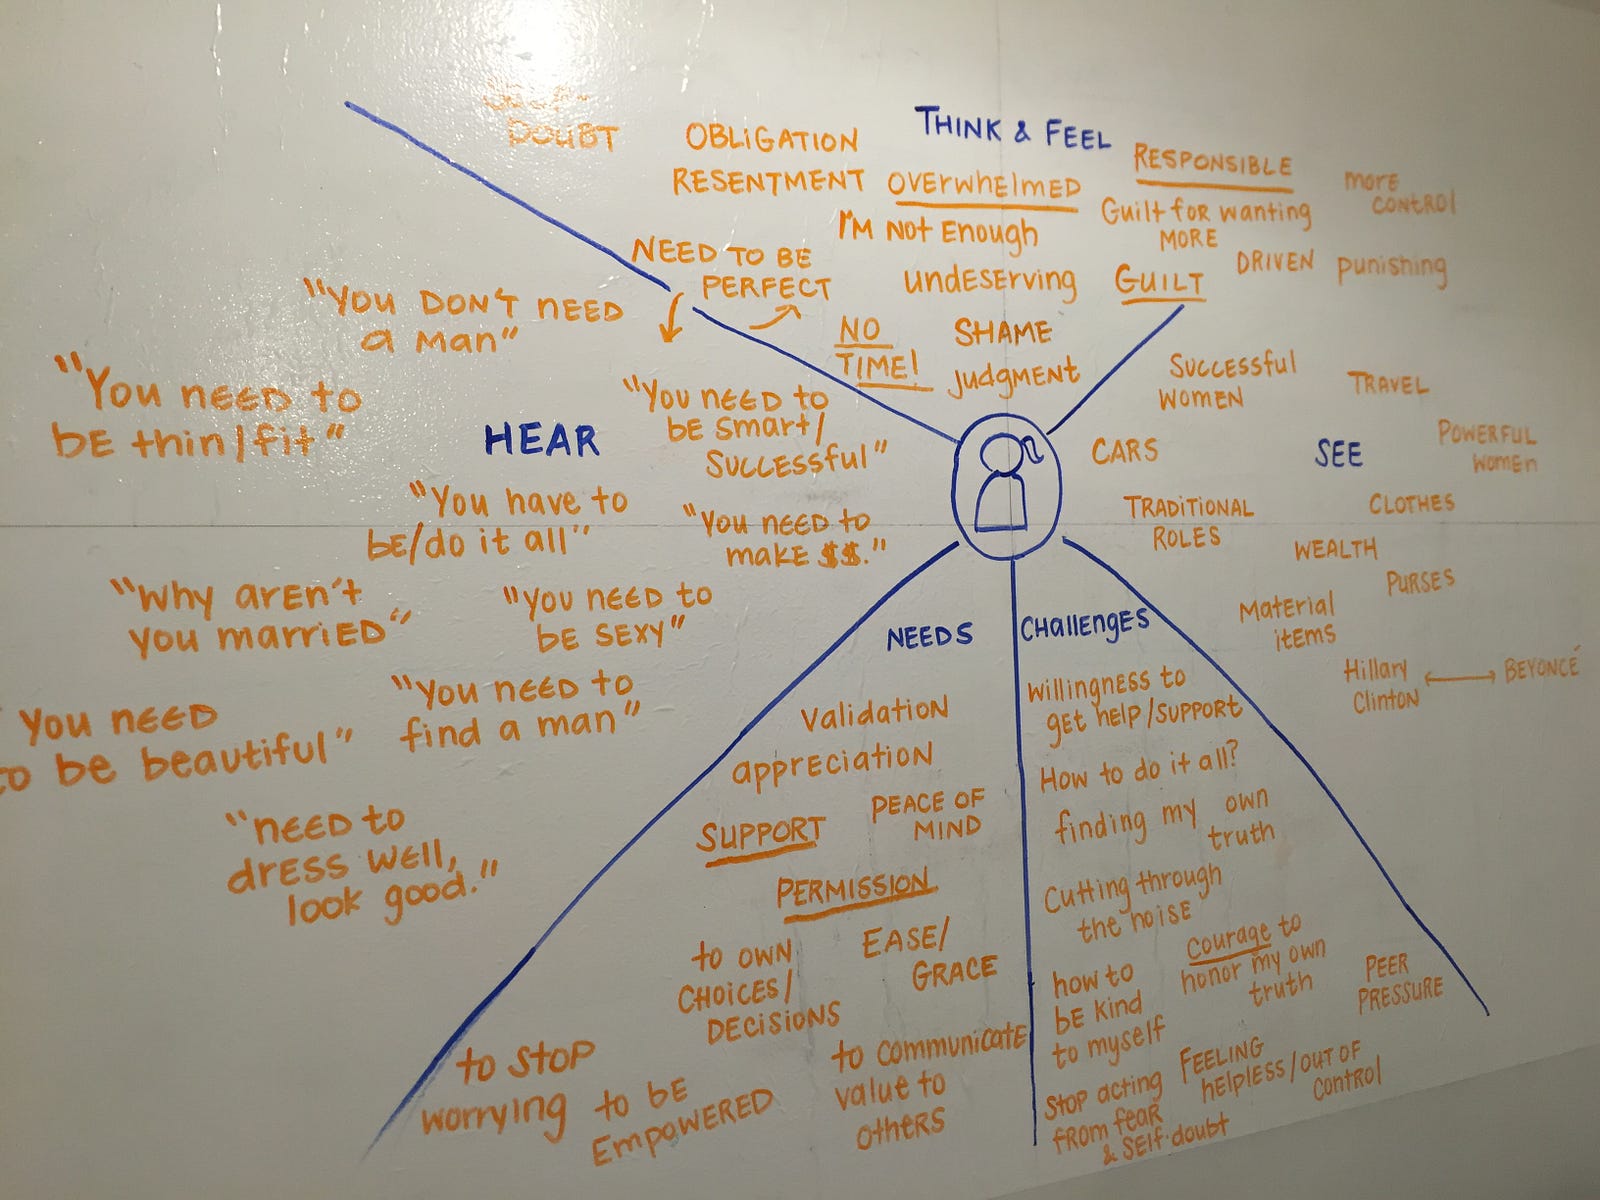 THINK & FEEL
SELF-
DOUBT
OBLIGATION
RESENTMENT
OVERWHELMED
RESPONSIBLE
more
CONTROL
I'M NOT Enough
Guilt for wanting
MORE
NEED TO BE
PERFECT
undeserving
GUILT
DRIVEN
punishing
NO
TIME!
SHAME
judgment
HEAR
"YOU DON'T NEED
a man"
"You need to
be thin/fit"
"You need to
be smart/
successful"
"You have to
be/do it all"
"You need to
make $$."
"Why aren't
you married"
"You need to
be sexy"
You need
to be beautiful"
"You need to
find a man"
"need to
dress well,
look good."
SEE
Successful
Women
TRAVEL
CARS
POWERFUL
Women
TRADITIONAL
ROLES
CLOTHES
WEALTH
PURSES
Material
items
Hillary
Clinton
BEYONCÉ
NEEDS
validation
appreciation
PEACE OF
MIND
SUPPORT
PERMISSION
to own
choices/
decisions
EASE/
GRACE
to stop
worrying
to be
Empowered
to communicate
value to
others
Challenges
willingness to
get help/support
How to do it all?
finding my own
truth
Cutting through
the noise
courage to
honor my own
truth
how to
be kind
to myself
PEER
PRESSURE
FEELING
helpless/out of
control
Stop acting
from fear
& self-doubt